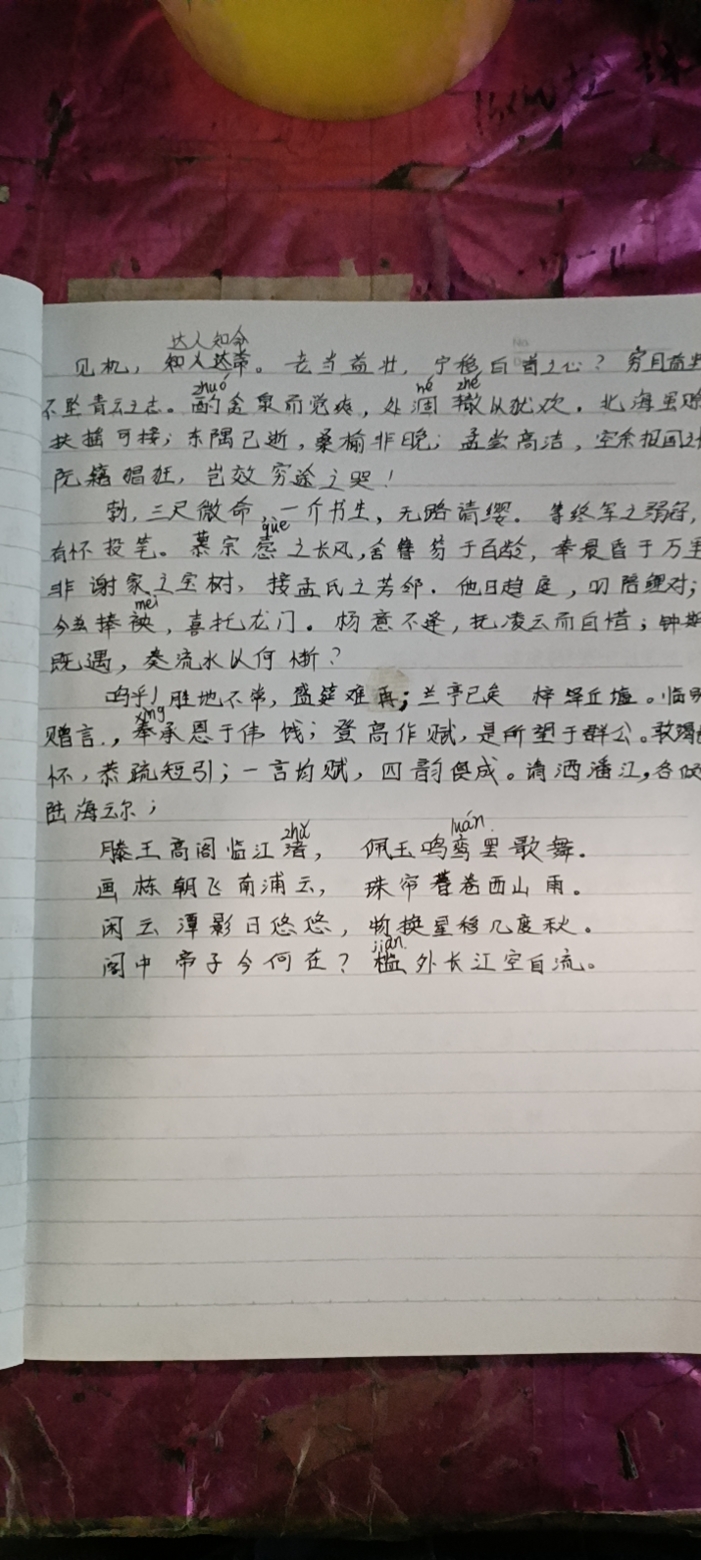 达人知命
见机，知人达常。老当益壮，宁移白首之心？穷且益坚
不坠青云之志。酌贪泉而觉爽，处涸辙以犹欢。北海虽赊
zhuó hé zhé
扶摇可接；东隅已逝，桑榆非晚；孟尝高洁，空余报国之
阮籍猖狂，岂效穷途之哭！
勃，三尺微命，一介书生，无路请缨。等终军之弱冠，
què
有怀投笔。慕宗悫之长风，舍簪笏于百龄，奉晨昏于万里
非谢家之宝树，接孟氏之芳邻。他日趋庭，叨陪鲤对；
mèi
今兹捧袂，喜托龙门。杨意不逢，抚凌云而自惜；钟期
既遇，奏流水以何惭？
呜乎！胜地不常，盛筵难再；兰亭已矣 梓泽丘墟。临别
xìng
赠言，奉承恩于伟饯；登高作赋，是所望于群公。敢竭
怀，恭疏短引；一言均赋，四韵俱成。请洒潘江，各倾
陆海云尔；
zhǔ luán
滕王高阁临江渚，佩玉鸣鸾罢歌舞。
画栋朝飞南浦云，珠帘暮卷西山雨。
闲云潭影日悠悠，物换星移几度秋。
jiàn
阁中帝子今何在？槛外长江空自流。